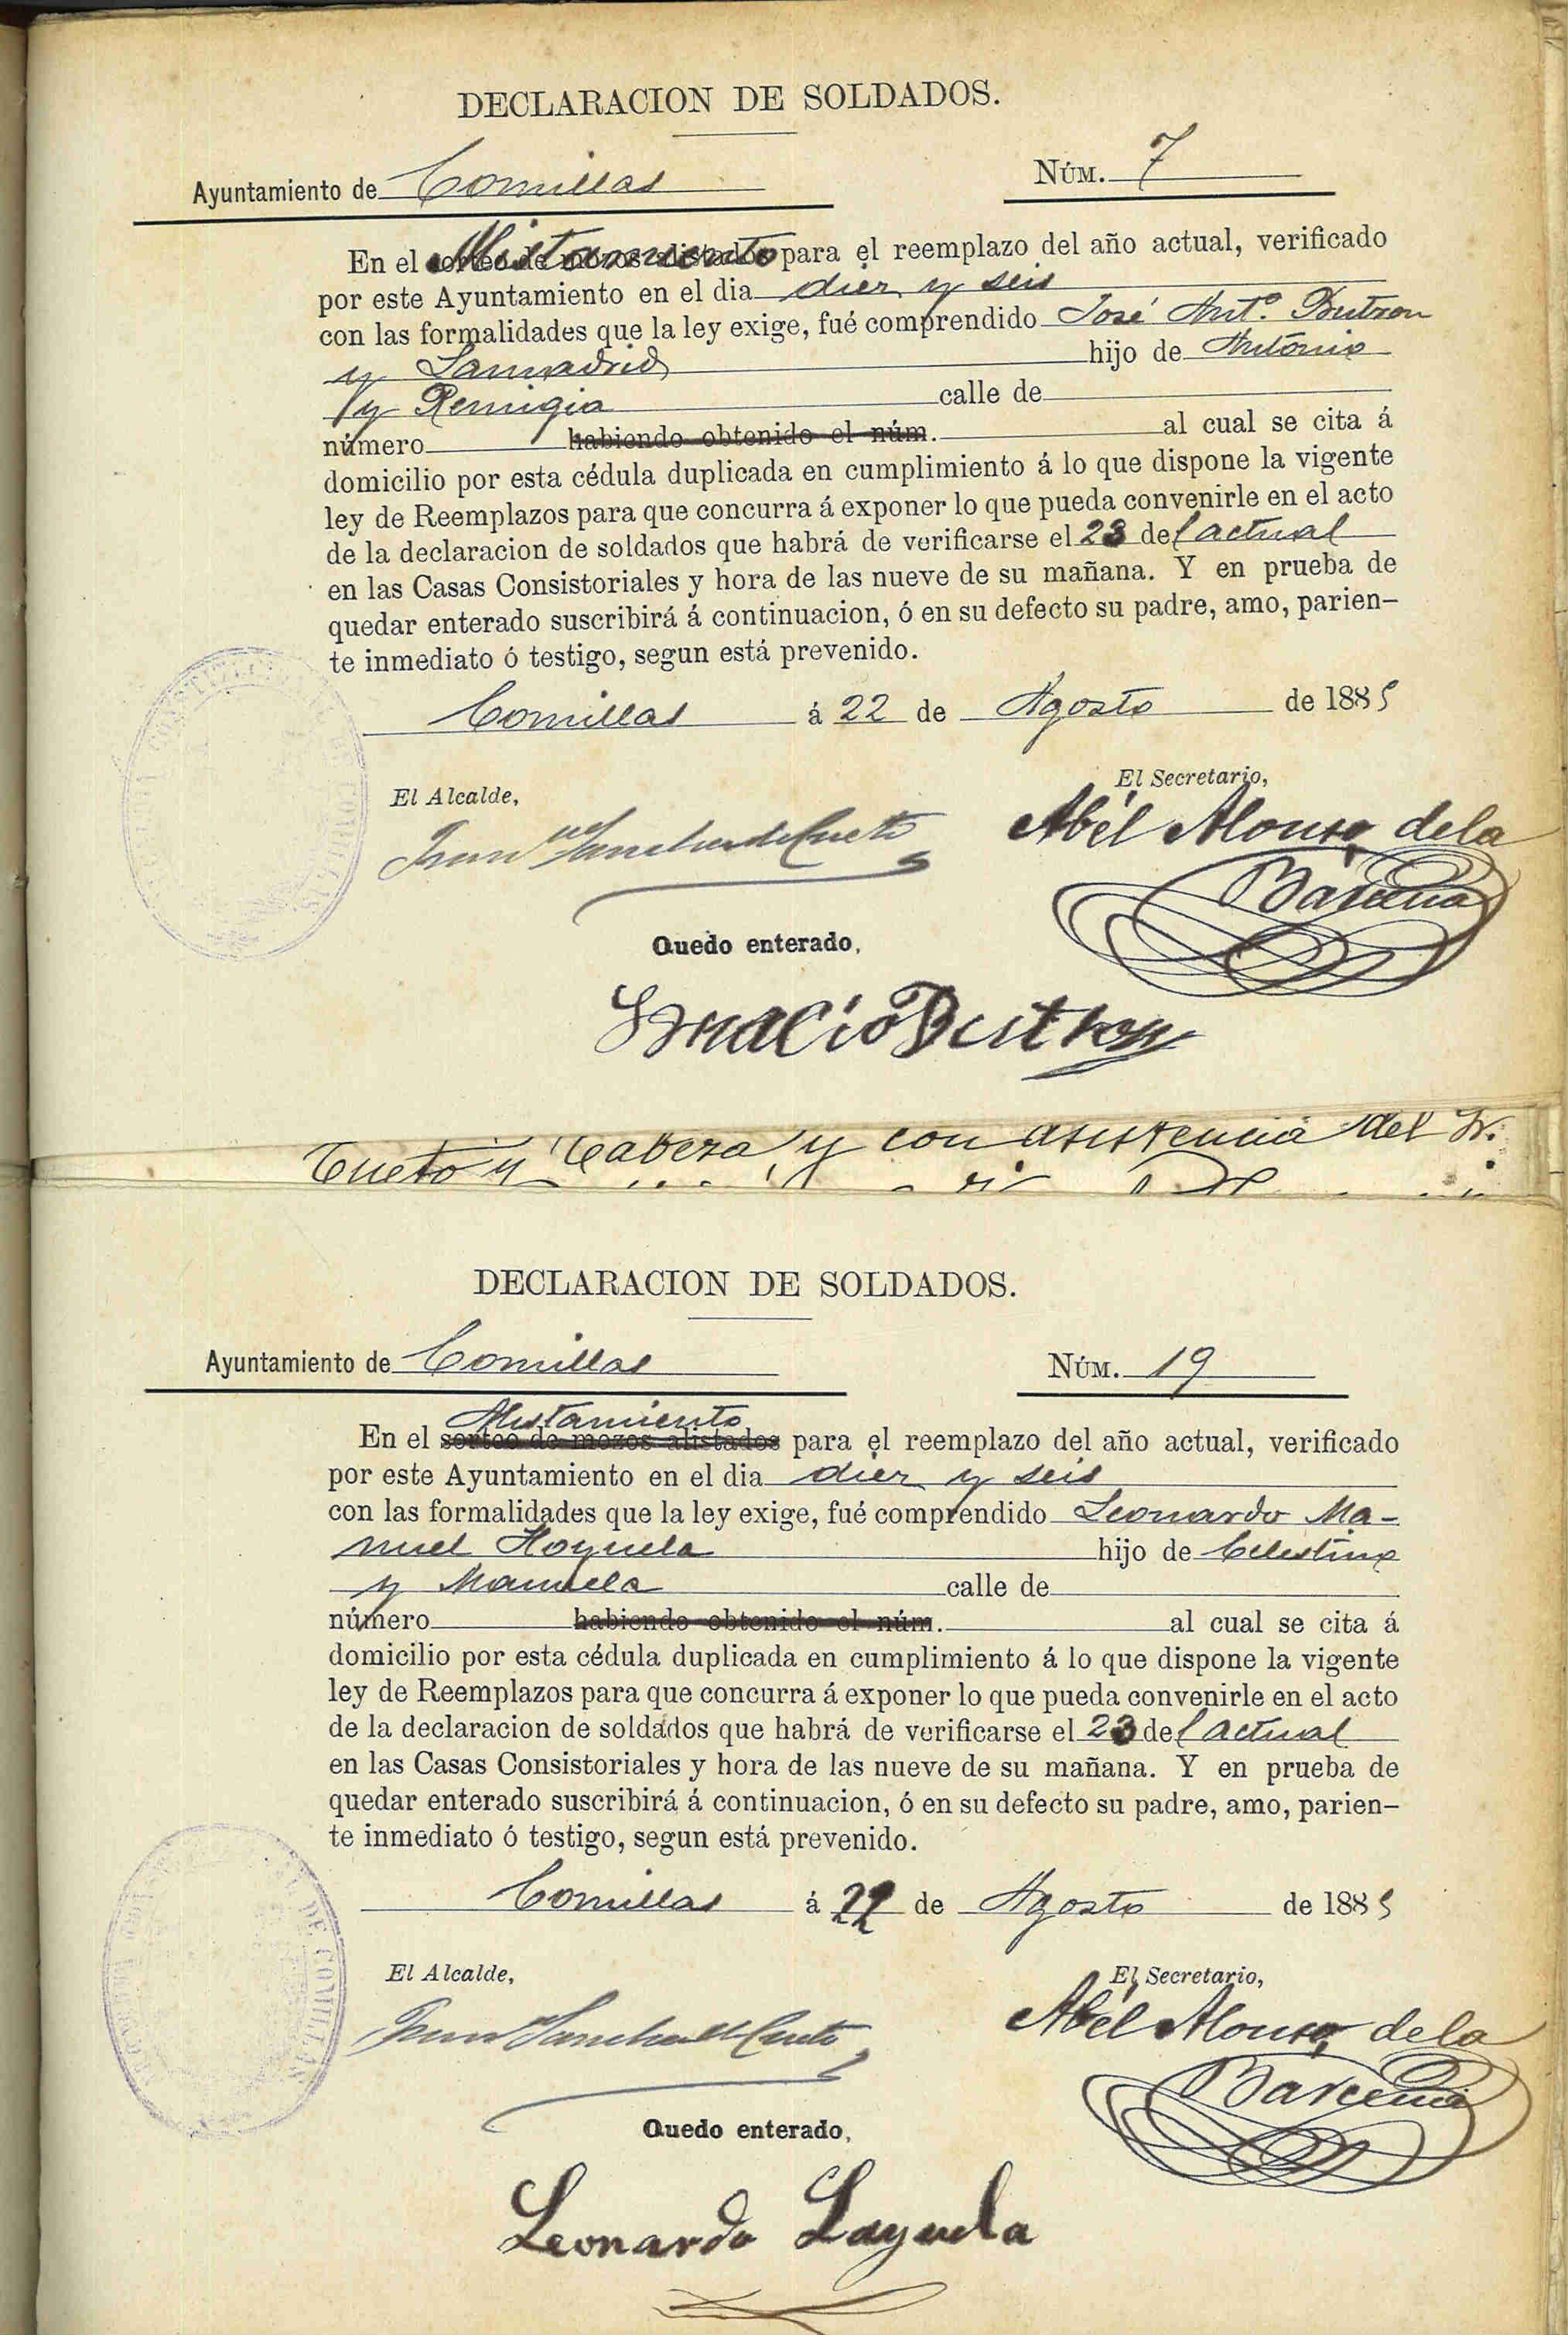 DECLARACION DE SOLDADOS.
Ayuntamiento de Comillas NÚM. 7
En el sorteo de mozos alistados Alistamiento para el reemplazo del año actual, verificado
por este Ayuntamiento en el dia diez y seis
con las formalidades que la ley exige, fué comprendido José Ant.º Butron
y Samadrid hijo de Antonio
y Remigia calle de
número habiendo obtenido el núm. al cual se cita á
domicilio por esta cédula duplicada en cumplimiento á lo que dispone la vigente
ley de Reemplazos para que concurra á exponer lo que pueda convenirle en el acto
de la declaracion de soldados que habrá de verificarse el 23 del actual
en las Casas Consistoriales y hora de las nueve de su mañana. Y en prueba de
quedar enterado suscribirá á continuacion, ó en su defecto su padre, amo, parien-
te inmediato ó testigo, segun está prevenido.
Comillas á 22 de Agosto de 1885
El Alcalde, El Secretario,
Juan Sanchez de Cueto Abél Alonso de la
Bárcena
Quedo enterado,
Ignacio Butron
Cueto y Cabeza y con asistencia del Sr.
DECLARACION DE SOLDADOS.
Ayuntamiento de Comillas NÚM. 19
Alistamiento
En el sorteo de mozos alistados para el reemplazo del año actual, verificado
por este Ayuntamiento en el dia diez y seis
con las formalidades que la ley exige, fué comprendido Leonardo Ma-
nuel Hoyuela hijo de Celestino
y Manuela calle de
número habiendo obtenido el núm. al cual se cita á
domicilio por esta cédula duplicada en cumplimiento á lo que dispone la vigente
ley de Reemplazos para que concurra á exponer lo que pueda convenirle en el acto
de la declaracion de soldados que habrá de verificarse el 23 del actual
en las Casas Consistoriales y hora de las nueve de su mañana. Y en prueba de
quedar enterado suscribirá á continuacion, ó en su defecto su padre, amo, parien-
te inmediato ó testigo, segun está prevenido.
Comillas á 22 de Agosto de 1885
El Alcalde, El Secretario,
Juan Sanchez de Cueto Abél Alonso de la
Bárcena
Quedo enterado,
Leonardo Layuela